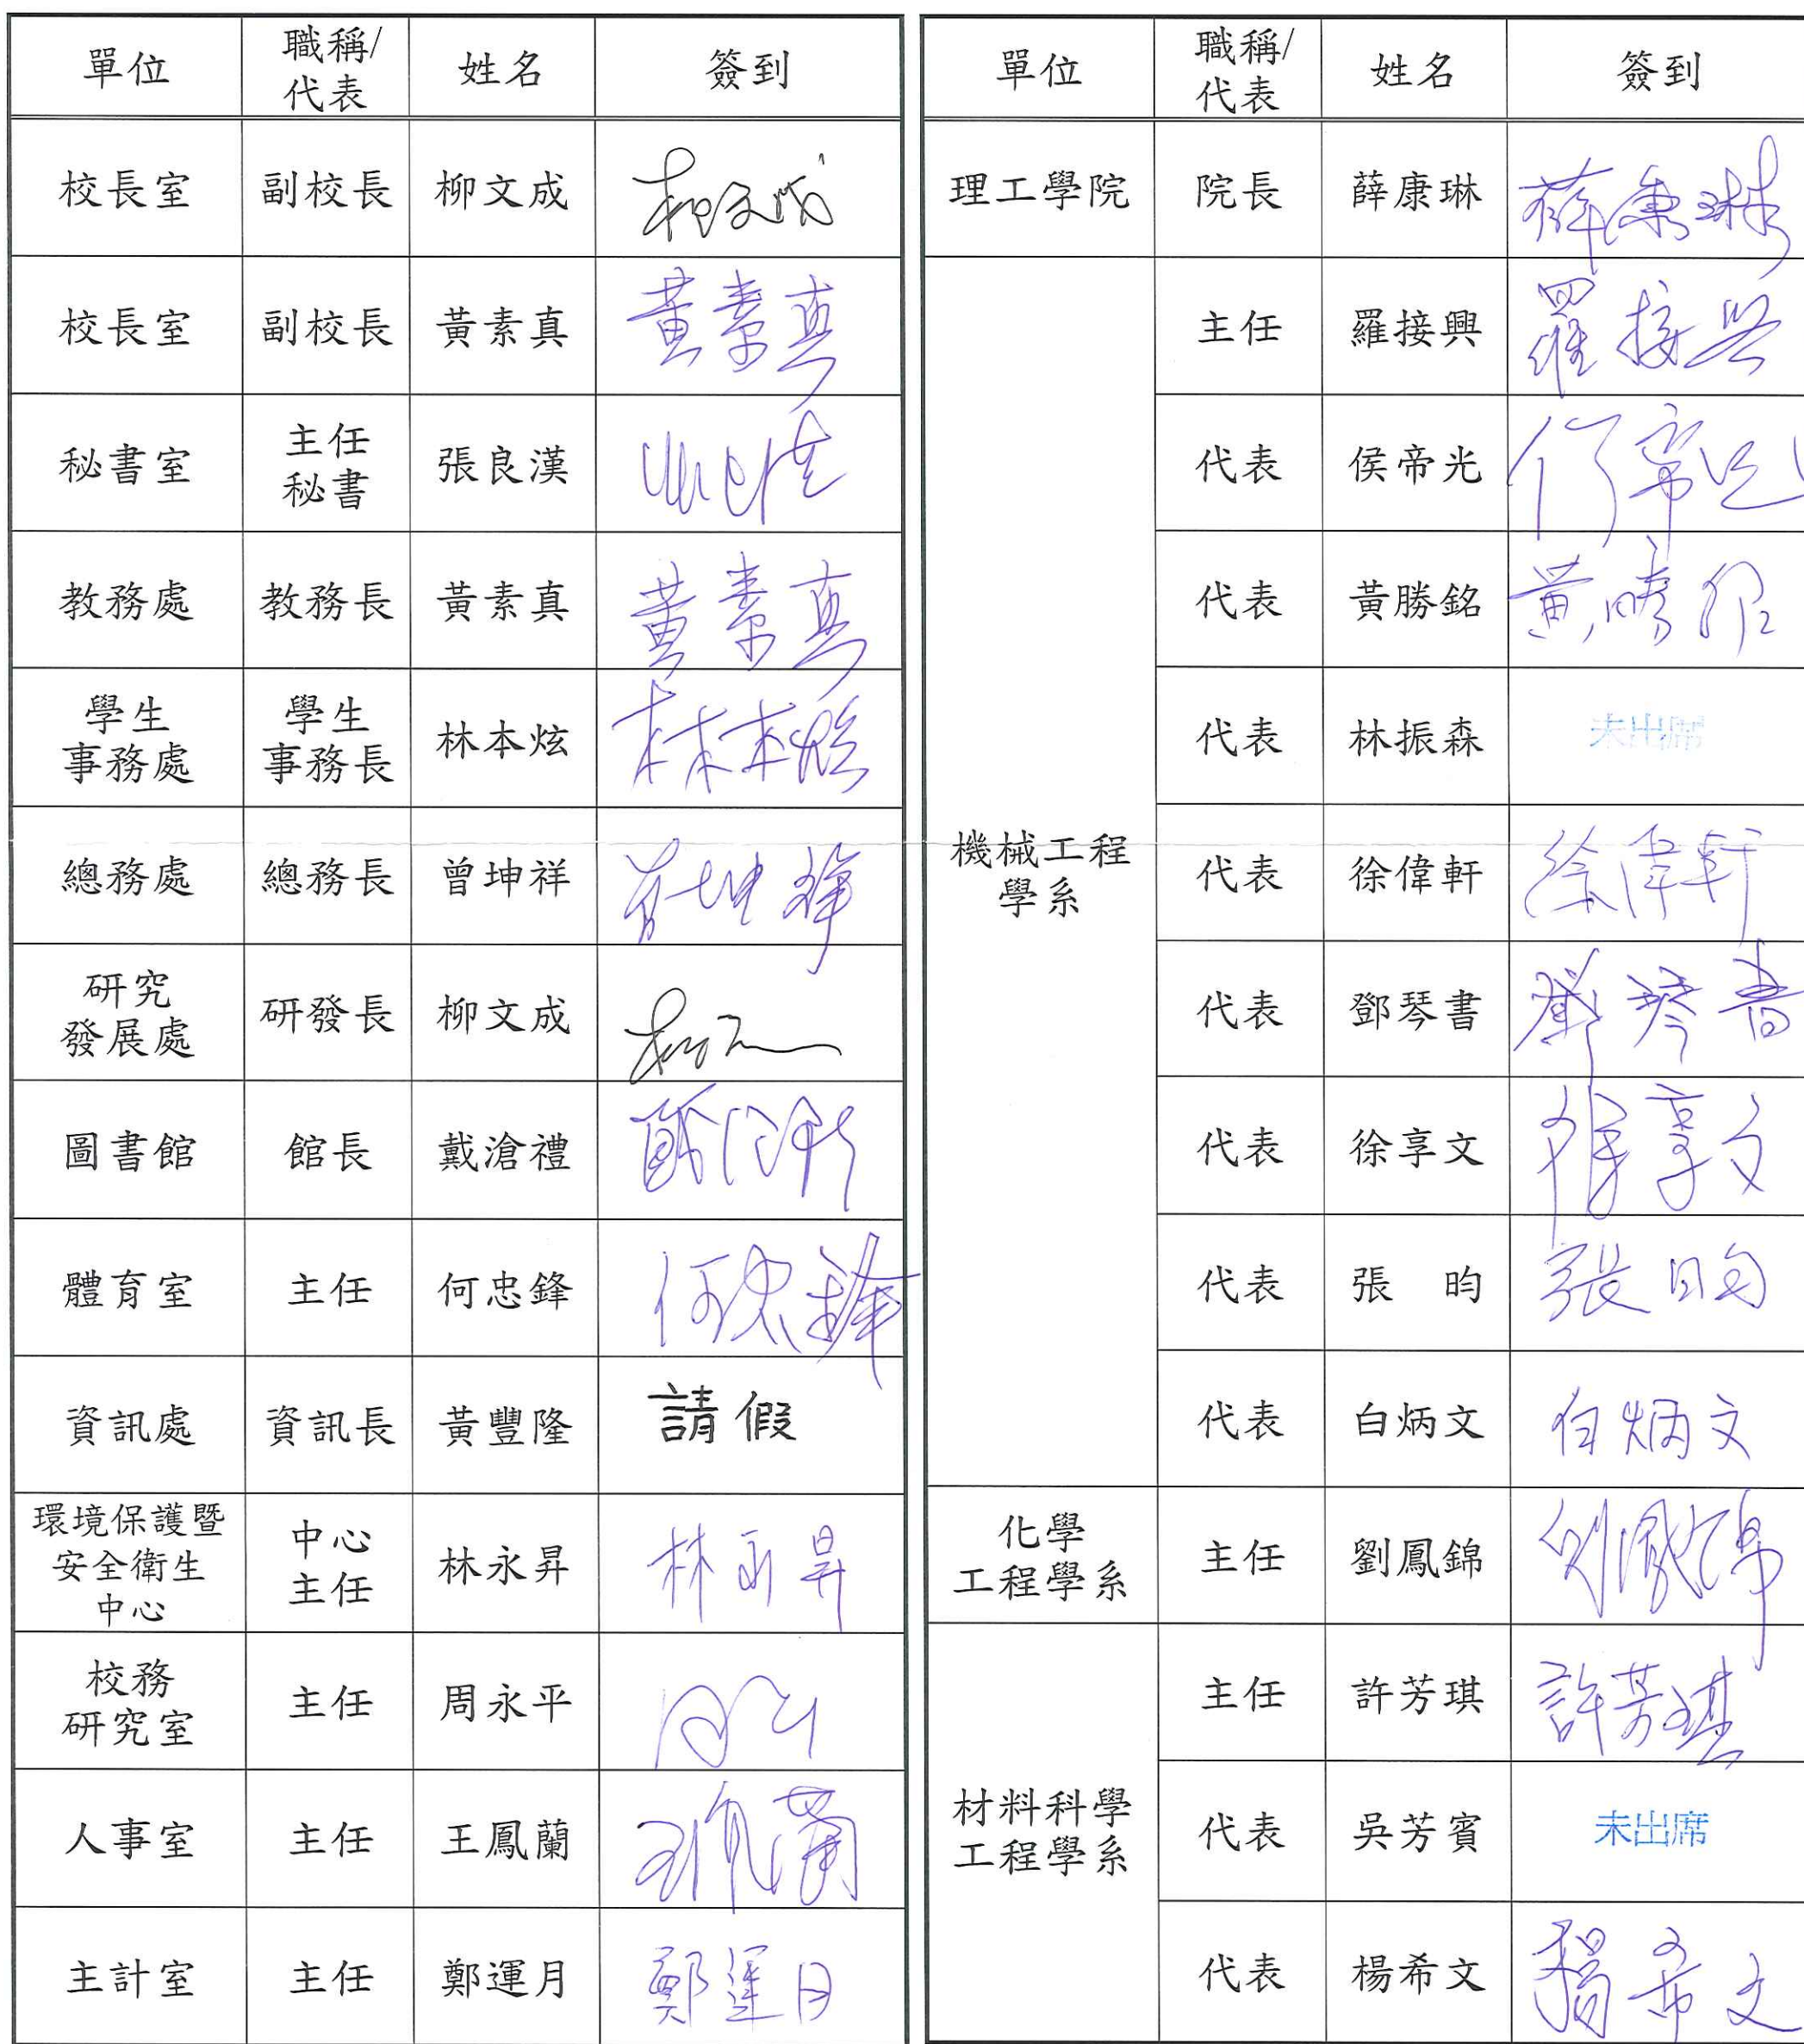 單位 職稱/代表 姓名 簽到
校長室 副校長 柳文成 柳文成
校長室 副校長 黃素真 黃素真
秘書室 主任秘書 張良漢
教務處 教務長 黃素真 黃素真
學生事務處 學生事務長 林本炫 林本炫
總務處 總務長 曾坤祥 曾坤祥
研究發展處 研發長 柳文成
圖書館 館長 戴滄禮
體育室 主任 何忠鋒 何忠鋒
資訊處 資訊長 黃豐隆 請假
環境保護暨安全衛生中心 中心主任 林永昇 林永昇
校務研究室 主任 周永平
人事室 主任 王鳳蘭 王鳳蘭
主計室 主任 鄭運月 鄭運月
單位 職稱/代表 姓名 簽到
理工學院 院長 薛康琳 薛康琳
機械工程學系 主任 羅接興 羅接興
代表 侯帝光 侯帝光
代表 黃勝銘 黃勝銘
代表 林振森 未出席
代表 徐偉軒 徐偉軒
代表 鄧琴書 鄧琴書
代表 徐享文 徐享文
代表 張昀 張昀
代表 白炳文 白炳文
化學工程學系 主任 劉鳳錦 劉鳳錦
材料科學工程學系 主任 許芳琪 許芳琪
代表 吳芳賓 未出席
代表 楊希文 楊希文